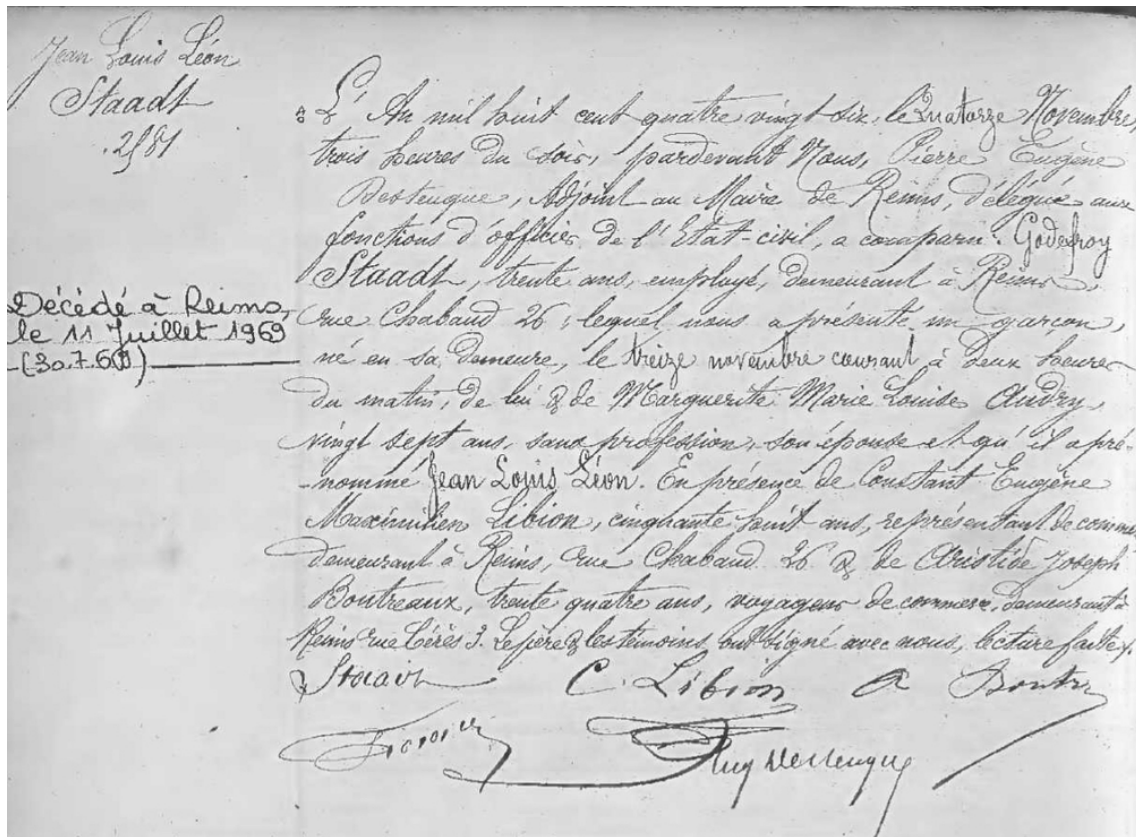 Jean Louis Léon
Staadt
2581
Décédé à Reims,
le 11 Juillet 1969
(30.7.69)
L'An mil huit cent quatre vingt six, le Quatorze Novembre,
trois heures du soir, pardevant Nous, Pierre Eugène
Desteuque, Adjoint au Maire de Reims, délégué aux
fonctions d'officier de l'Etat-civil, a comparu: Godefroy
Staadt, trente ans, employé, demeurant à Reims,
rue Chabaud 26; lequel nous a présenté un garçon,
né en sa demeure, le treize novembre courant à deux heures
du matin, de lui & de Marguerite Marie Louise Audry,
vingt sept ans, sans profession, son épouse et qu'il a pré-
-nommé Jean Louis Léon. En présence de Constant Eugène
Maximilien Libion, cinquante huit ans, représentant de comme
demeurant à Reims, rue Chabaud 26 & de Aristide Joseph
Boutreaux, trente quatre ans, voyageur de commerce, demeurant à
Reims rue Cérès 3. Le père & les témoins ont signé avec nous, lecture faite.
G Staadt C. Libion A Boutr
Eug Desteuque